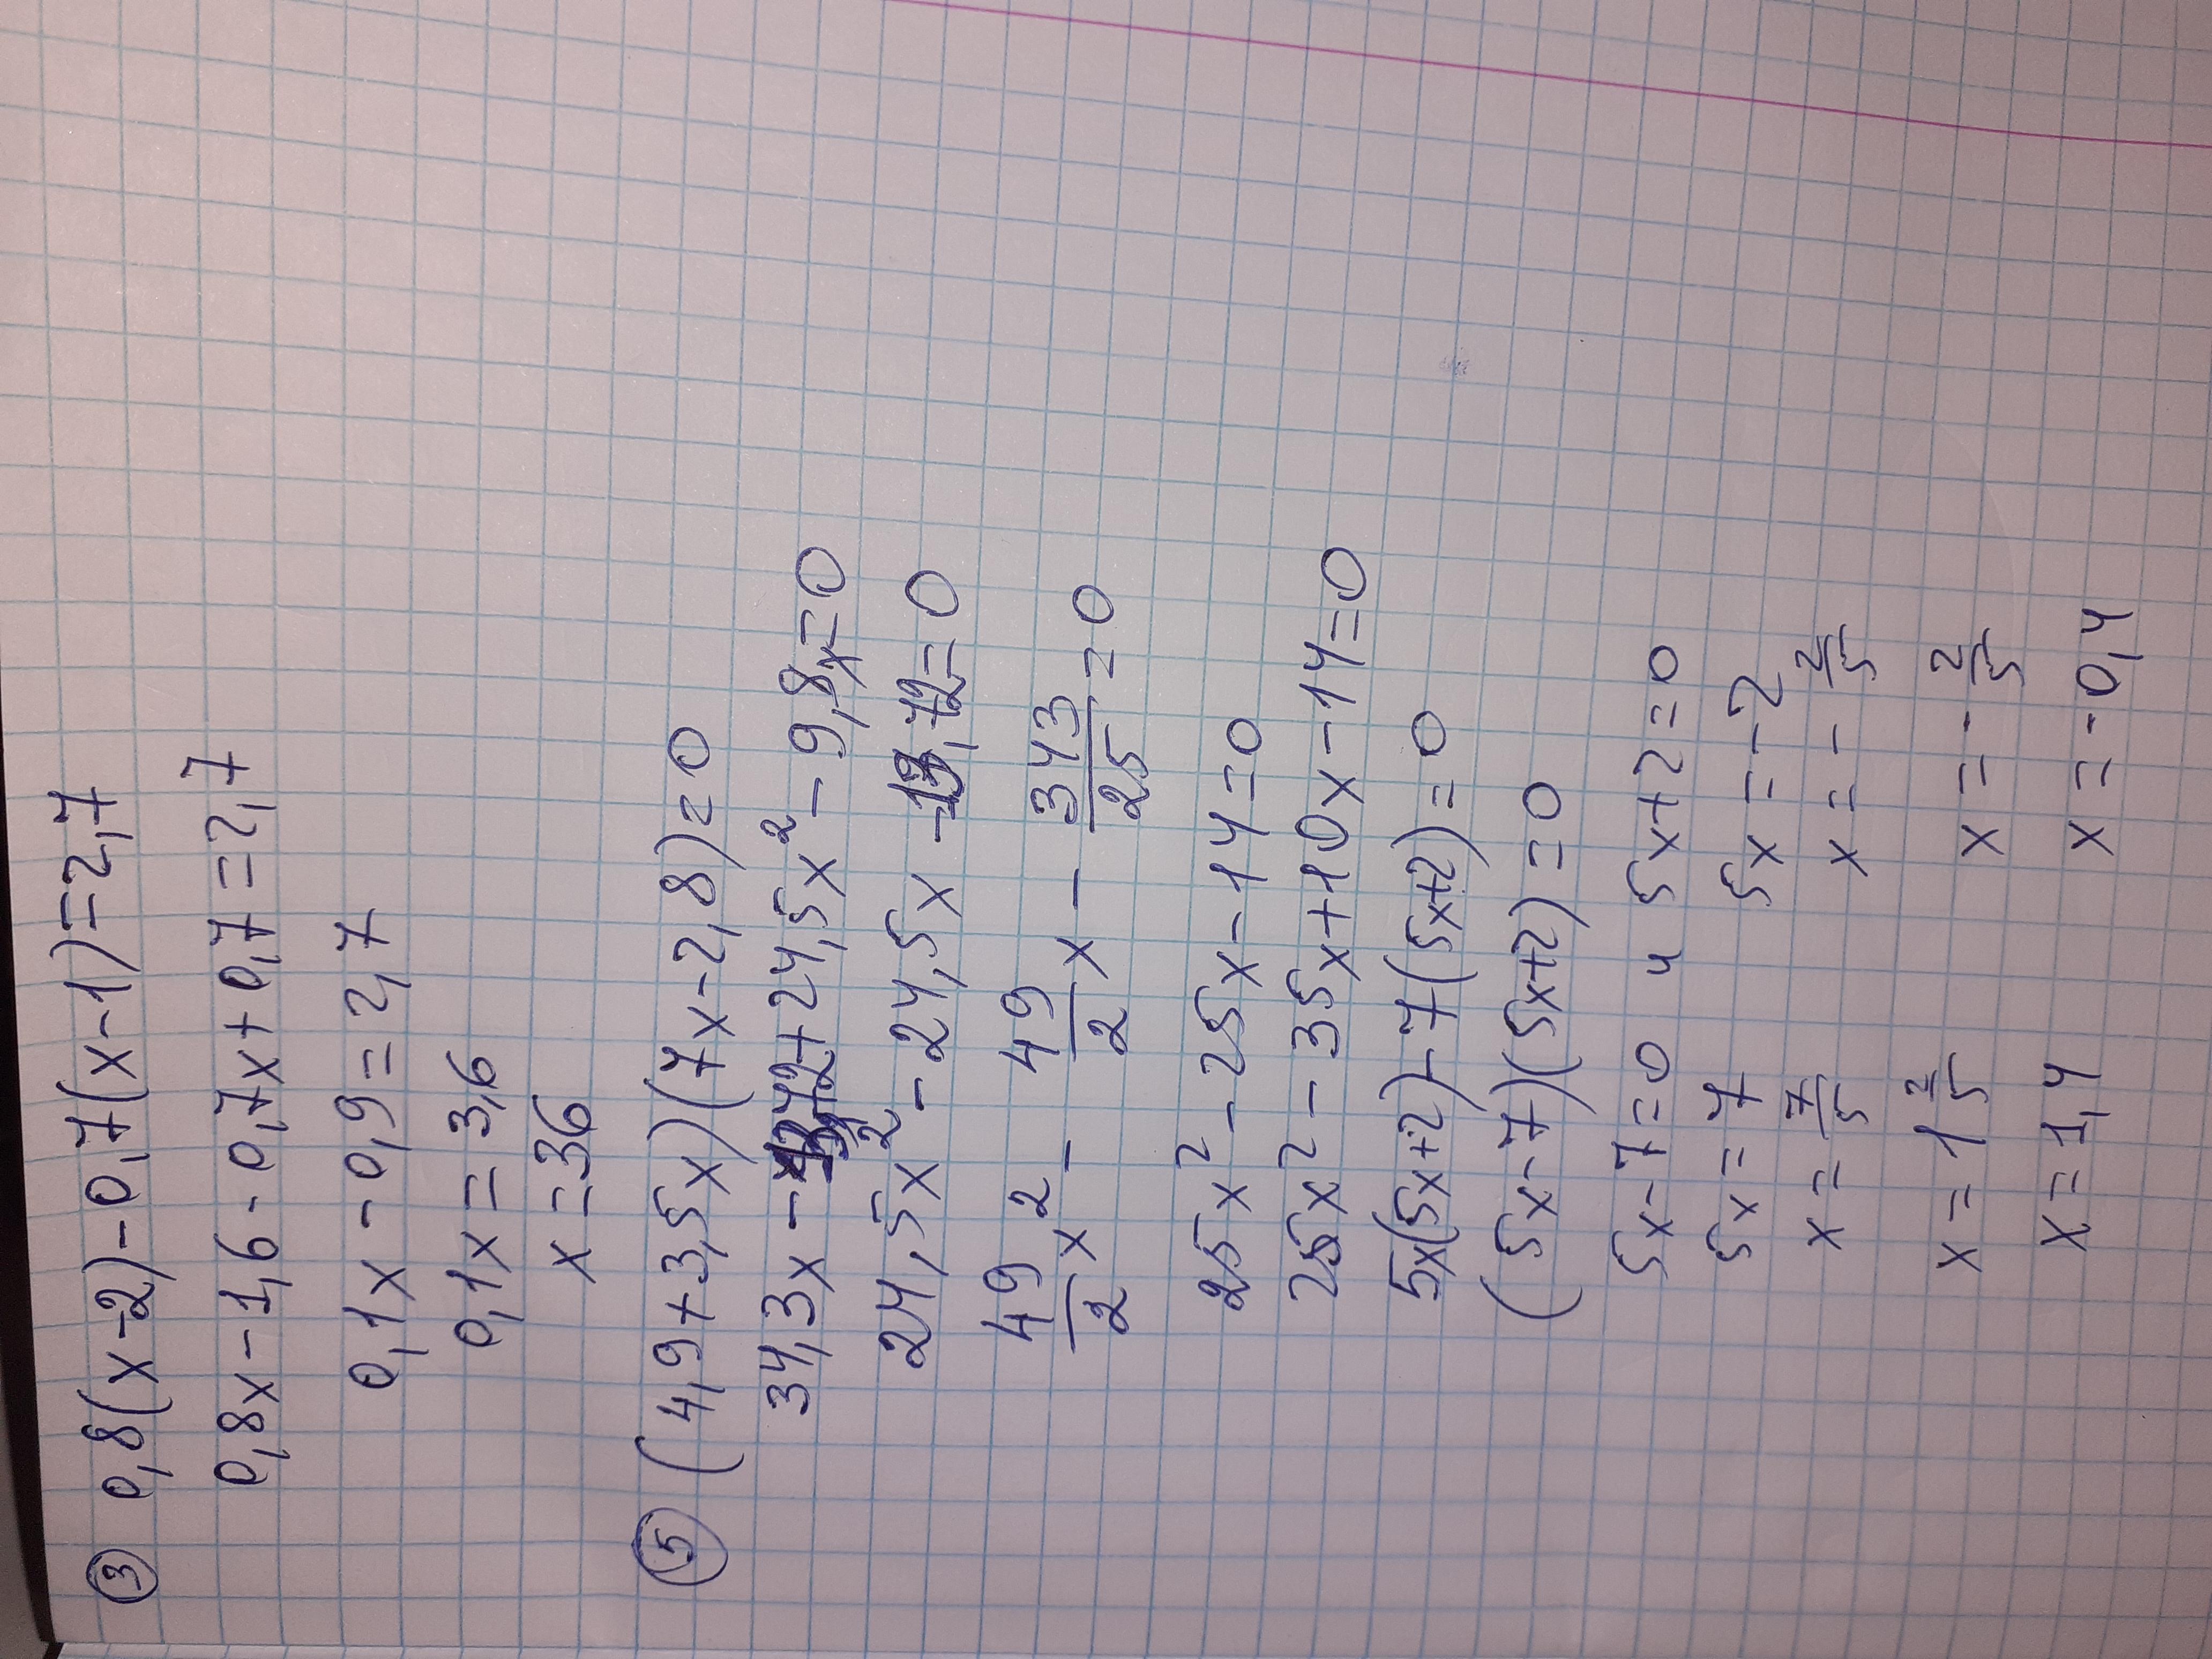 ③ 0,8(x-2)-0,7(x-1)=2,7
0,8x-1,6-0,7x+0,7=2,7
0,1x-0,9=2,7
0,1x=3,6
x=36
⑤ (4,9+3,5x)(7x-2,8)=0
34,3x-13,72+24,5x²-9,8x=0
24,5x²-24,5x-13,72=0
49/2 x² - 49/2 x - 343/25 = 0
25x²-25x-14=0
25x²-35x+10x-14=0
5x(5x+2)-7(5x+2)=0
(5x-7)(5x+2)=0
5x-7=0 и 5x+2=0
5x=7 5x=-2
x=7/5 x=-2/5
x=1 2/5 x=-2/5
x=1,4 x=-0,4